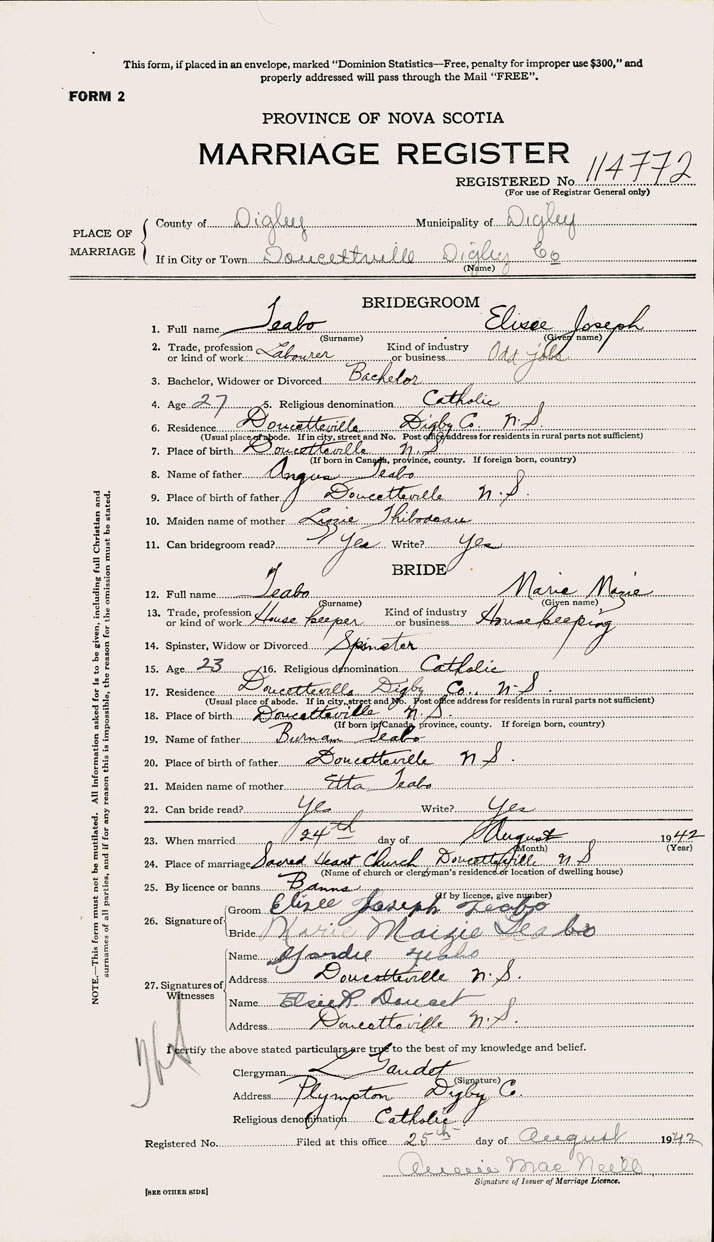 This form, if placed in an envelope, marked "Dominion Statistics—Free, penalty for improper use $300," and
properly addressed will pass through the Mail "FREE".
FORM 2
PROVINCE OF NOVA SCOTIA
MARRIAGE REGISTER
REGISTERED No. 114772
(For use of Registrar General only)
PLACE OF MARRIAGE
County of Digby Municipality of Digby
If in City or Town Doucetteville Digby Co
(Name)
BRIDEGROOM
1. Full name Teabo Elisee Joseph
(Surname) (Given name)
2. Trade, profession or kind of work Labourer Kind of industry or business Odd jobs
3. Bachelor, Widower or Divorced Bachelor
4. Age 27 5. Religious denomination Catholic
6. Residence Doucetteville Digby Co. N.S.
(Usual place of abode. If in city, street and No. Post office address for residents in rural parts not sufficient)
7. Place of birth Doucetteville N.S.
(If born in Canada, province, county. If foreign born, country)
8. Name of father Angus Teabo
9. Place of birth of father Doucetteville N.S.
10. Maiden name of mother Lizzie Thibodeau
11. Can bridegroom read? Yes Write? Yes
BRIDE
12. Full name Teabo Marie Mazie
(Surname) (Given name)
13. Trade, profession or kind of work House keeper Kind of industry or business House keeping
14. Spinster, Widow or Divorced Spinster
15. Age 23 16. Religious denomination Catholic
17. Residence Doucetteville Digby Co., N.S.
(Usual place of abode. If in city, street and No. Post office address for residents in rural parts not sufficient)
18. Place of birth Doucetteville N.S.
(If born in Canada, province, county. If foreign born, country)
19. Name of father Burnam Teabo
20. Place of birth of father Doucetteville N.S.
21. Maiden name of mother Etta Teabo
22. Can bride read? Yes Write? Yes
23. When married 24th day of August 1942
(Month) (Year)
24. Place of marriage Sacred Heart Church Doucetteville N S
(Name of church or clergyman's residence or location of dwelling house)
25. By licence or banns Banns
(If by licence, give number)
26. Signature of
Groom Elisee Joseph Teabo
Bride Marie Maizie Teabo
27. Signatures of Witnesses
Name Teabo
Address Doucetteville N.S.
Name Elsie R. Doucet
Address Doucetteville N.S.
I certify the above stated particulars are true to the best of my knowledge and belief.
Clergyman L Gaudet
(Signature)
Address Plympton Digby Co.
Religious denomination Catholic
Registered No. Filed at this office 25th day of August 1942
Annie MacNeill
Signature of Issuer of Marriage Licence.
[SEE OTHER SIDE]
NOTE.—This form must not be mutilated. All information asked for is to be given, including full Christian and
surnames of all parties, and if for any reason this is impossible, the reason for the omission must be stated.